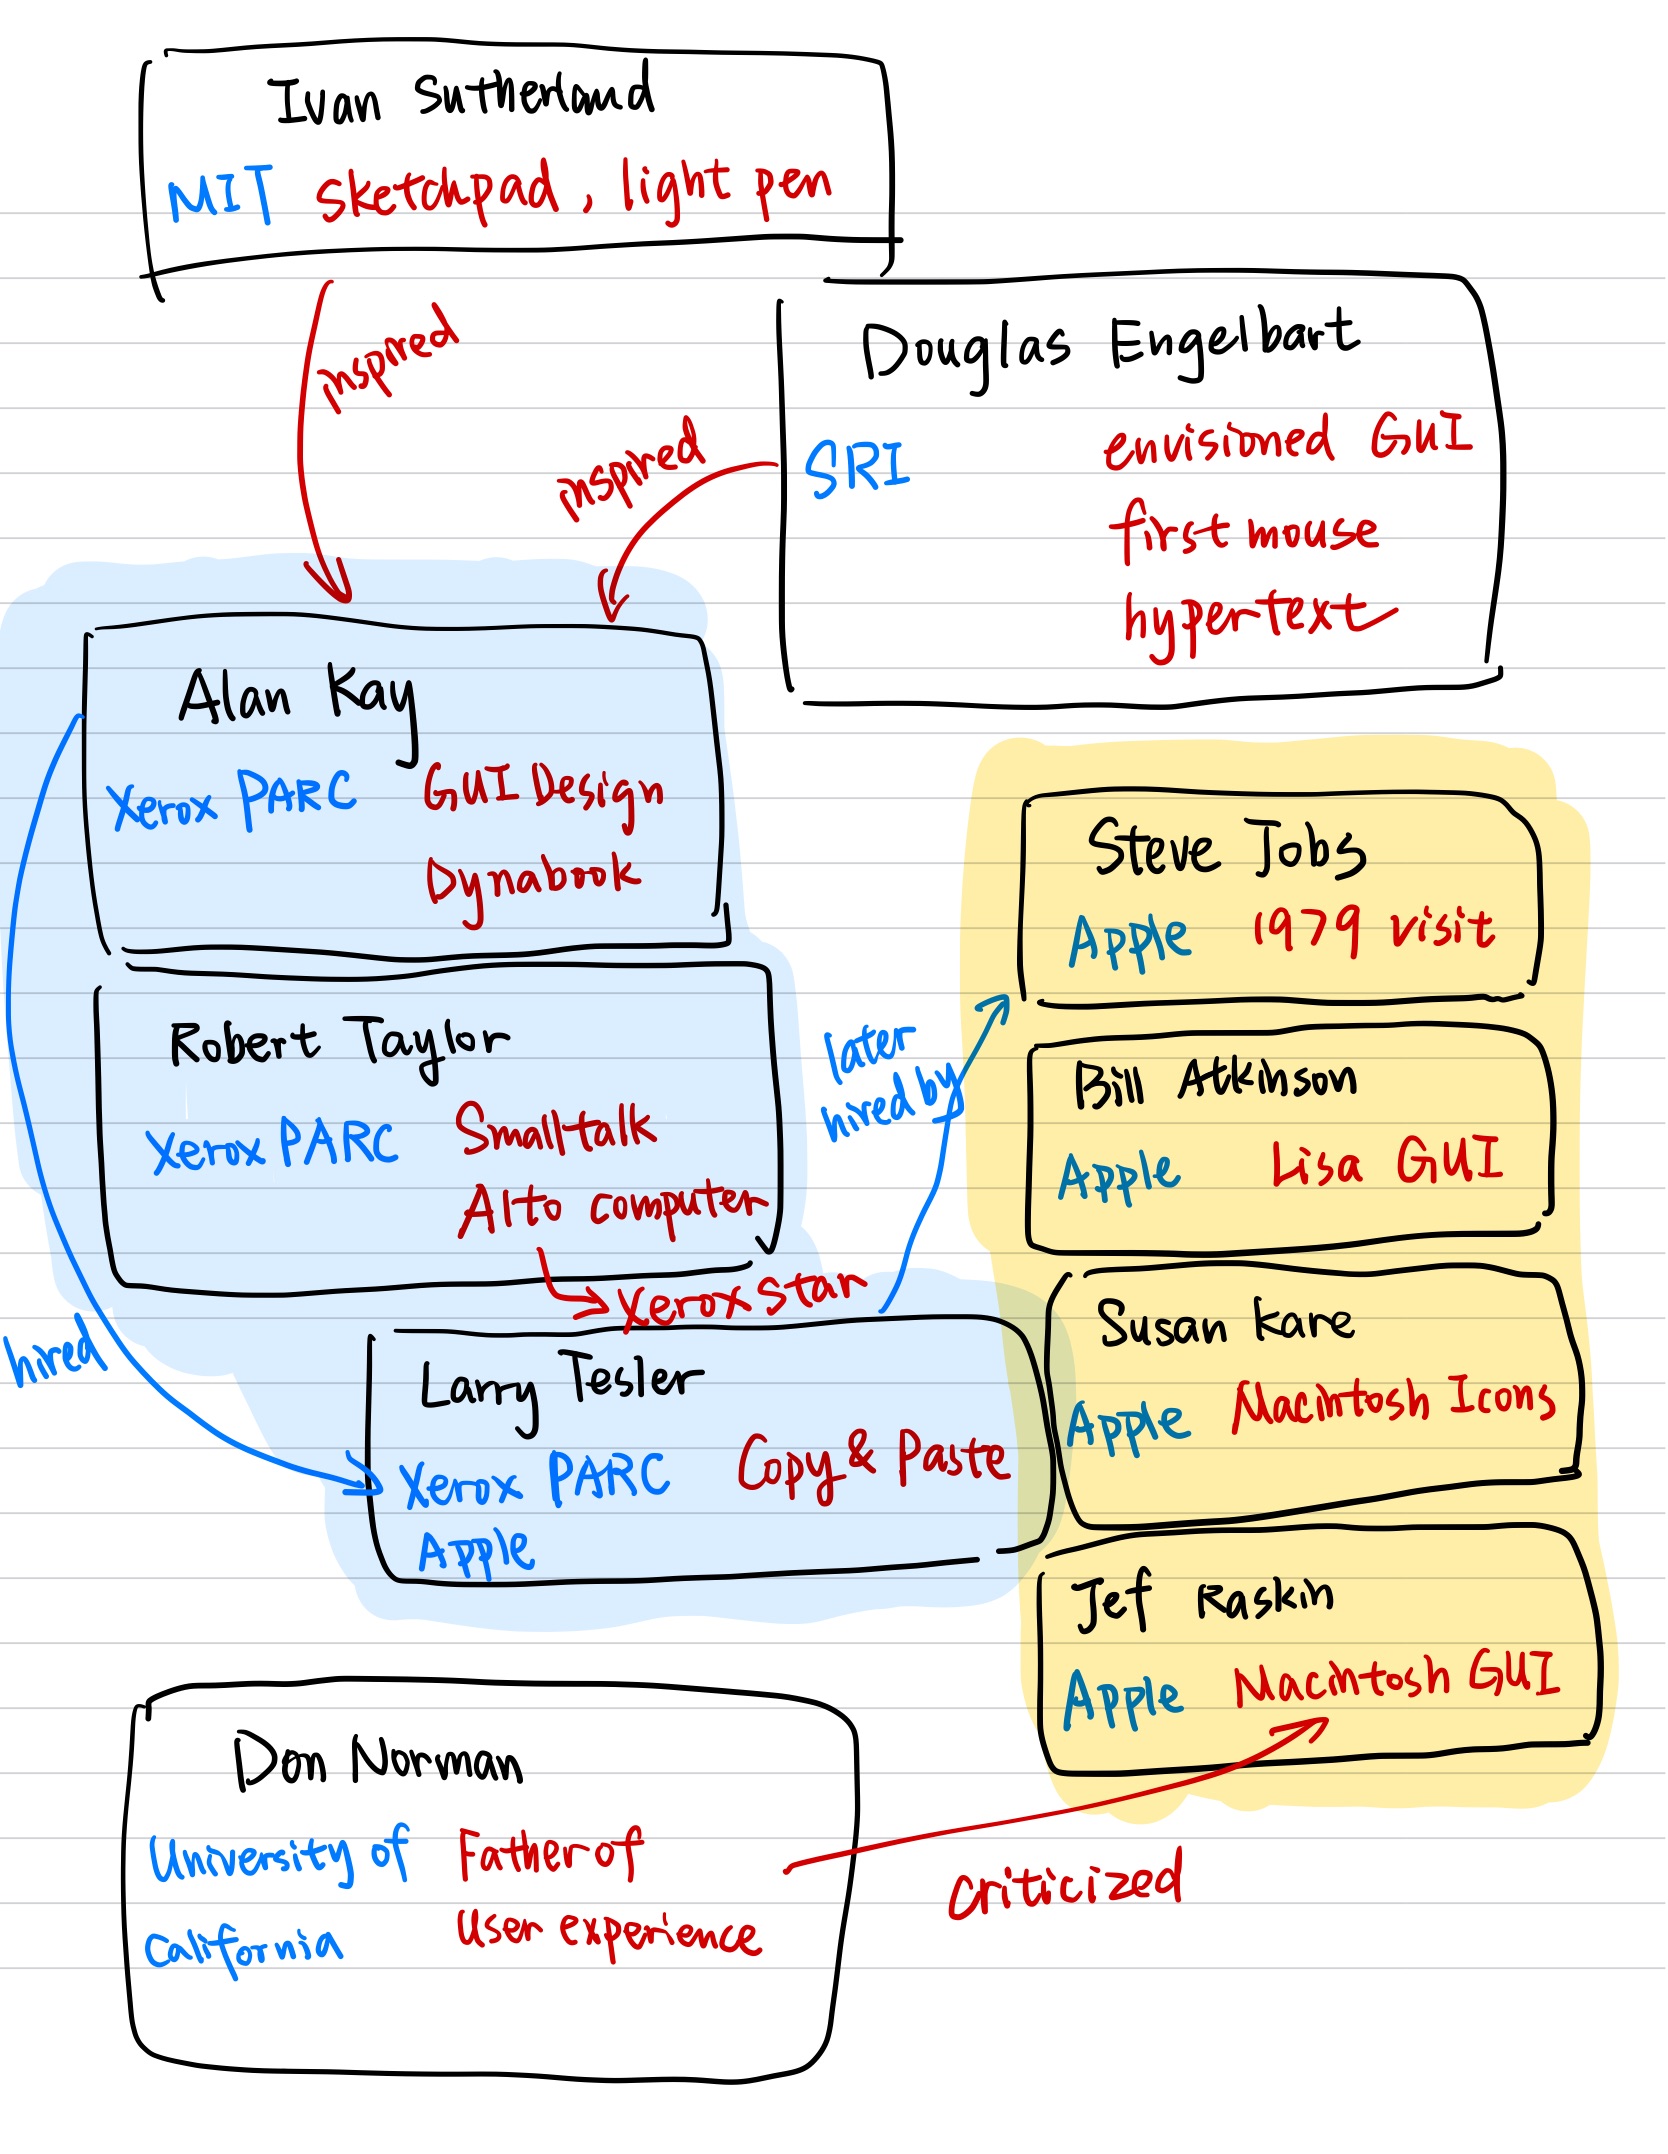 Ivan Sutherland
MIT sketchpad, light pen
inspired
Douglas Engelbart
SRI envisioned GUI
first mouse
hypertext
inspired
Alan Kay
Xerox PARC GUI Design
Dynabook
Robert Taylor
Xerox PARC Smalltalk
Alto computer
Xerox Star
hired
Larry Tesler
Xerox PARC Copy & Paste
Apple
later
hired by
Steve Jobs
Apple 1979 visit
Bill Atkinson
Apple Lisa GUI
Susan Kare
Apple Macintosh Icons
Jef Raskin
Apple Macintosh GUI
Don Norman
University of Father of
California User experience
criticized